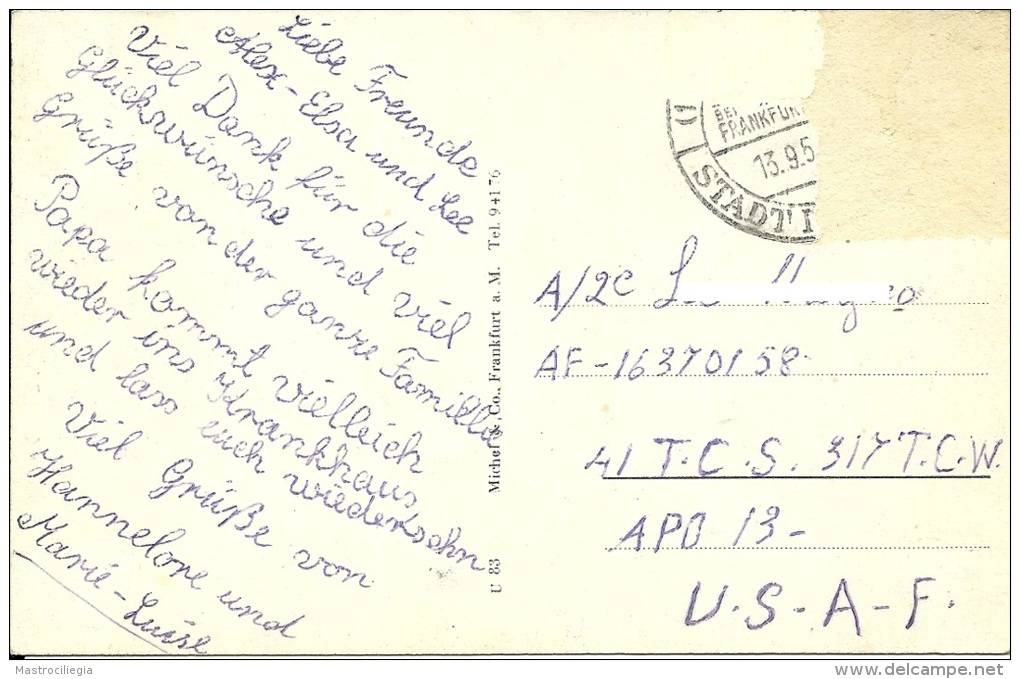 Liebe Freunde
Alex - Elsa und Lee
Viel Dank für die
Glückwünsche und viel
Grüße von der ganze Famillie
Papa kommt vielleich
wieder ins Krankhaus
und lass euch wiedersehn
Viel Grüße von
Hannelore und
Marie-Luise
U 83 Michel & Co., Frankfurt a. M. Tel. 9 41 76
BEI
FRANKFUR
13.9.5
STADT I
A/2C
AF-16370158
41 T.C.S. 317 T.C.W.
APO 13-
U.S.A-F.
Mastrociliegia
www.delcampe.net